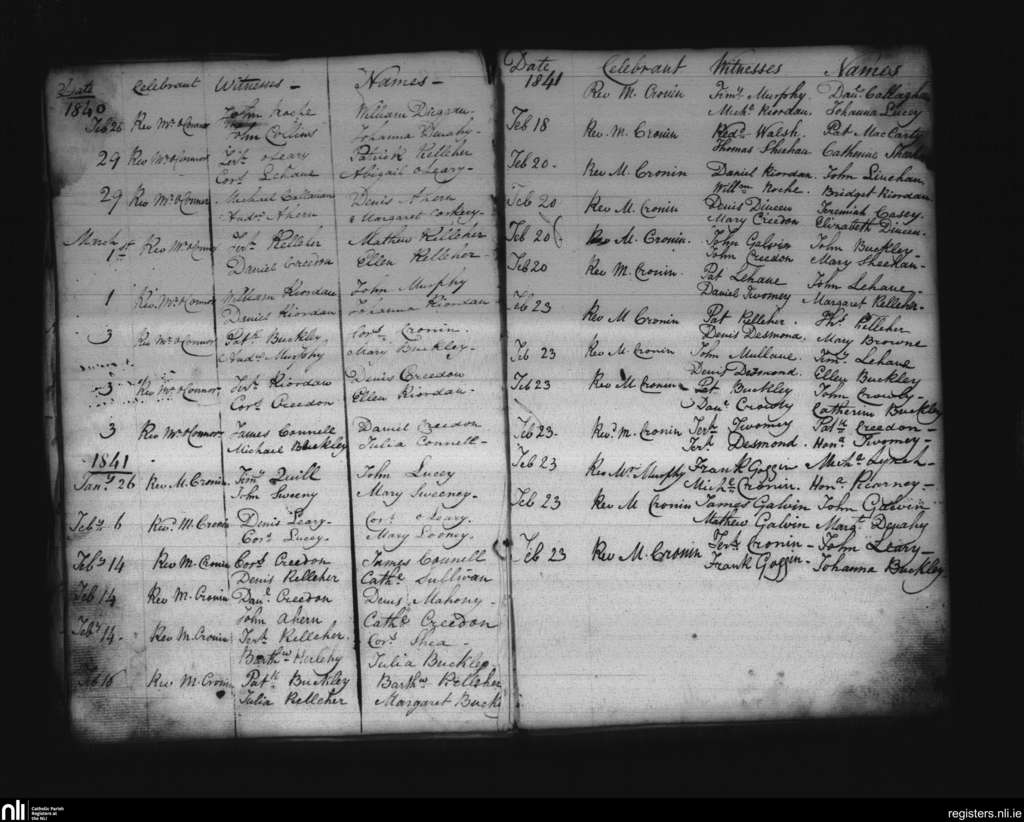 Date Celebrant Witnesses - Names -
1840
Feb 26 Rev Mr O Connor John Roche William
John Collins Johanna
29 Rev Mr O Connor Jerh. O Leary Patrick Kelleher
Cors. Lehane Abigail O Leary -
29 Rev Mr O Connor Michael Callanan Denis Ahern
Andw. Ahern Margaret
March 1st Rev Mr O Connor Jerh. Kelleher Mathew Kelleher
Daniel Creedon Ellen Kelleher -
1 Rev Mr O Connor William Riordan John Murphy
Denis Riordan Johanna Riordan -
3 Rev Mr O Connor Patk. Buckley Cors. Cronin.
Andw. Murphy Mary Buckley -
3 Rev Mr O Connor Jerh. Riordan Denis Creedon
Cors. Creedon Ellen Riordan -
3 Rev Mr O Connor James Connell Daniel Creedon
Michael Buckley Julia Connell -
1841
Jany. 26 Rev M. Cronin Timy. Quill John Lucey
John Sweeny Mary Sweeney -
Feby. 6 Revd. M. Cronin Denis Leary - Cors. O Leary.
Cors. Lucey. Mary Looney.
Feby 14 Rev M. Cronin Cors. Creedon James Connell
Denis Kelleher Cathe. Sullivan
Feb 14 Rev M. Cronin Danl. Creedon Denis Mahony -
John Ahern Cathe. Creedon
Feby 14. Rev M. Cronin Jerh. Kelleher. Cors. Shea -
Barthw. Herlehy Julia Buckley.
Feb 16 Rev M. Cronin Patk. Buckley Barthw. Kelleher
Julia Kelleher Margaret Buck
Date Celebrant Witnesses Names
1841
Rev M. Cronin Timy. Murphy. Danl. Callaghan
Michl. Riordan. Johanna Lucey
Feb 18 Rev M. Cronin Redd. Walsh. Pat MacCarty
Thomas Sheehan Catherine
Feb 20. Rev M. Cronin Daniel Riordan John Linehan
Willm. Roche. Bridget Riordan
Feb 20 Rev M. Cronin Denis Dineen Jeremiah Casey.
Mary Creedon Elizabeth Dineen.
Feb 20 Rev M. Cronin. John Galvin John Buckley -
John Creedon Mary Sheehan -
Feb 20 Rev M. Cronin Pat Lehane John Lehane
Daniel Twomey Margaret Kelleher.
Feb 23 Rev M Cronin Pat Kelleher. Thos. Kelleher
Denis Desmond. Mary Browne
Feb 23 Rev M. Cronin John Mullane. Timy. Lehane
Denis Desmond. Elley Buckley
Feb 23 Rev M Cronin Pat Buckley John Crowly -
Danl. Crowly Catherine Buckley
Feb 23 - Revd. M. Cronin Jerh. Twomey Patk. Creedon -
Jerh. Desmond. Hona. Twomey -
Feb 23 Rev Mr. Murphy Frank Goggin Michl. Lynch -
Michl. Cronin. Hona. Kearney -
Feb 23 Rev M Cronin James Galvin John Galvin
Mathew Galvin Margt. Denahy
Feb 23 Rev M. Cronin Jerh. Cronin - John Leary -
Frank Goggin - Johanna Buckley
nli Catholic Parish
Registers at
the NLI
registers.nli.ie